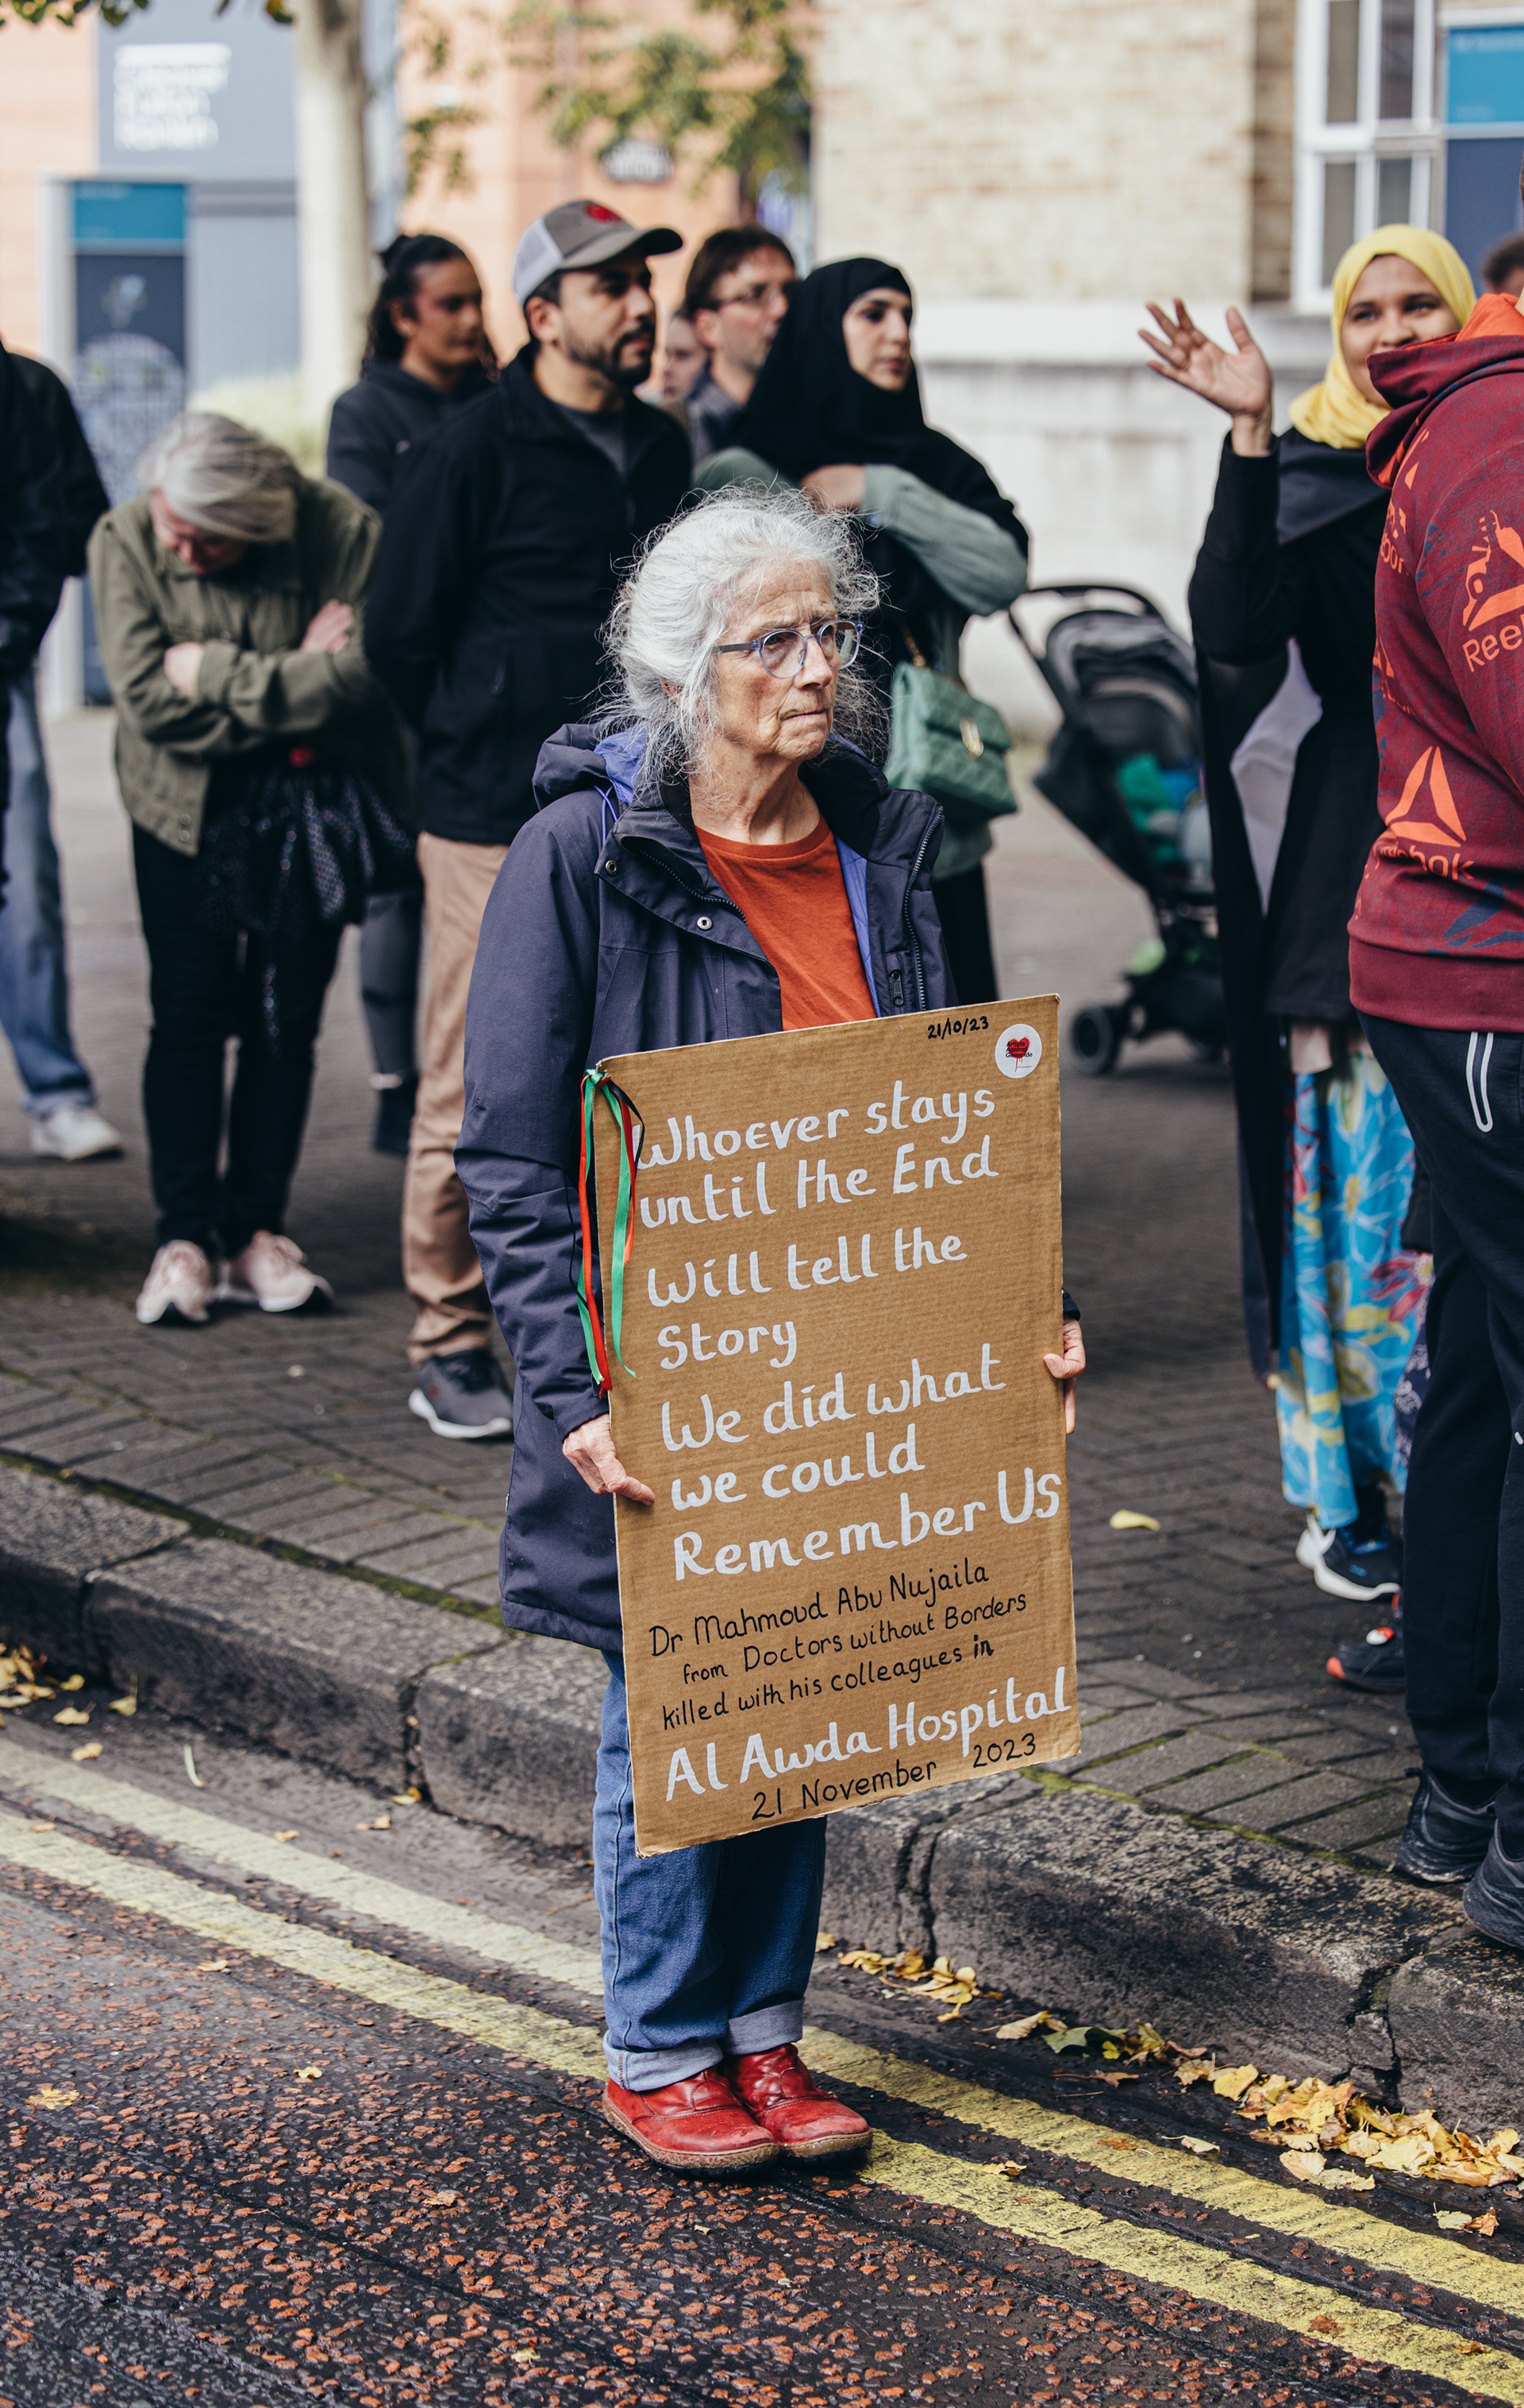 21/10/23
Whoever stays
until the End
Will tell the
Story
We did what
we could
Remember Us
Dr Mahmoud Abu Nujaila
from Doctors without Borders
killed with his colleagues in
Al Awda Hospital
21 November 2023
Reebok